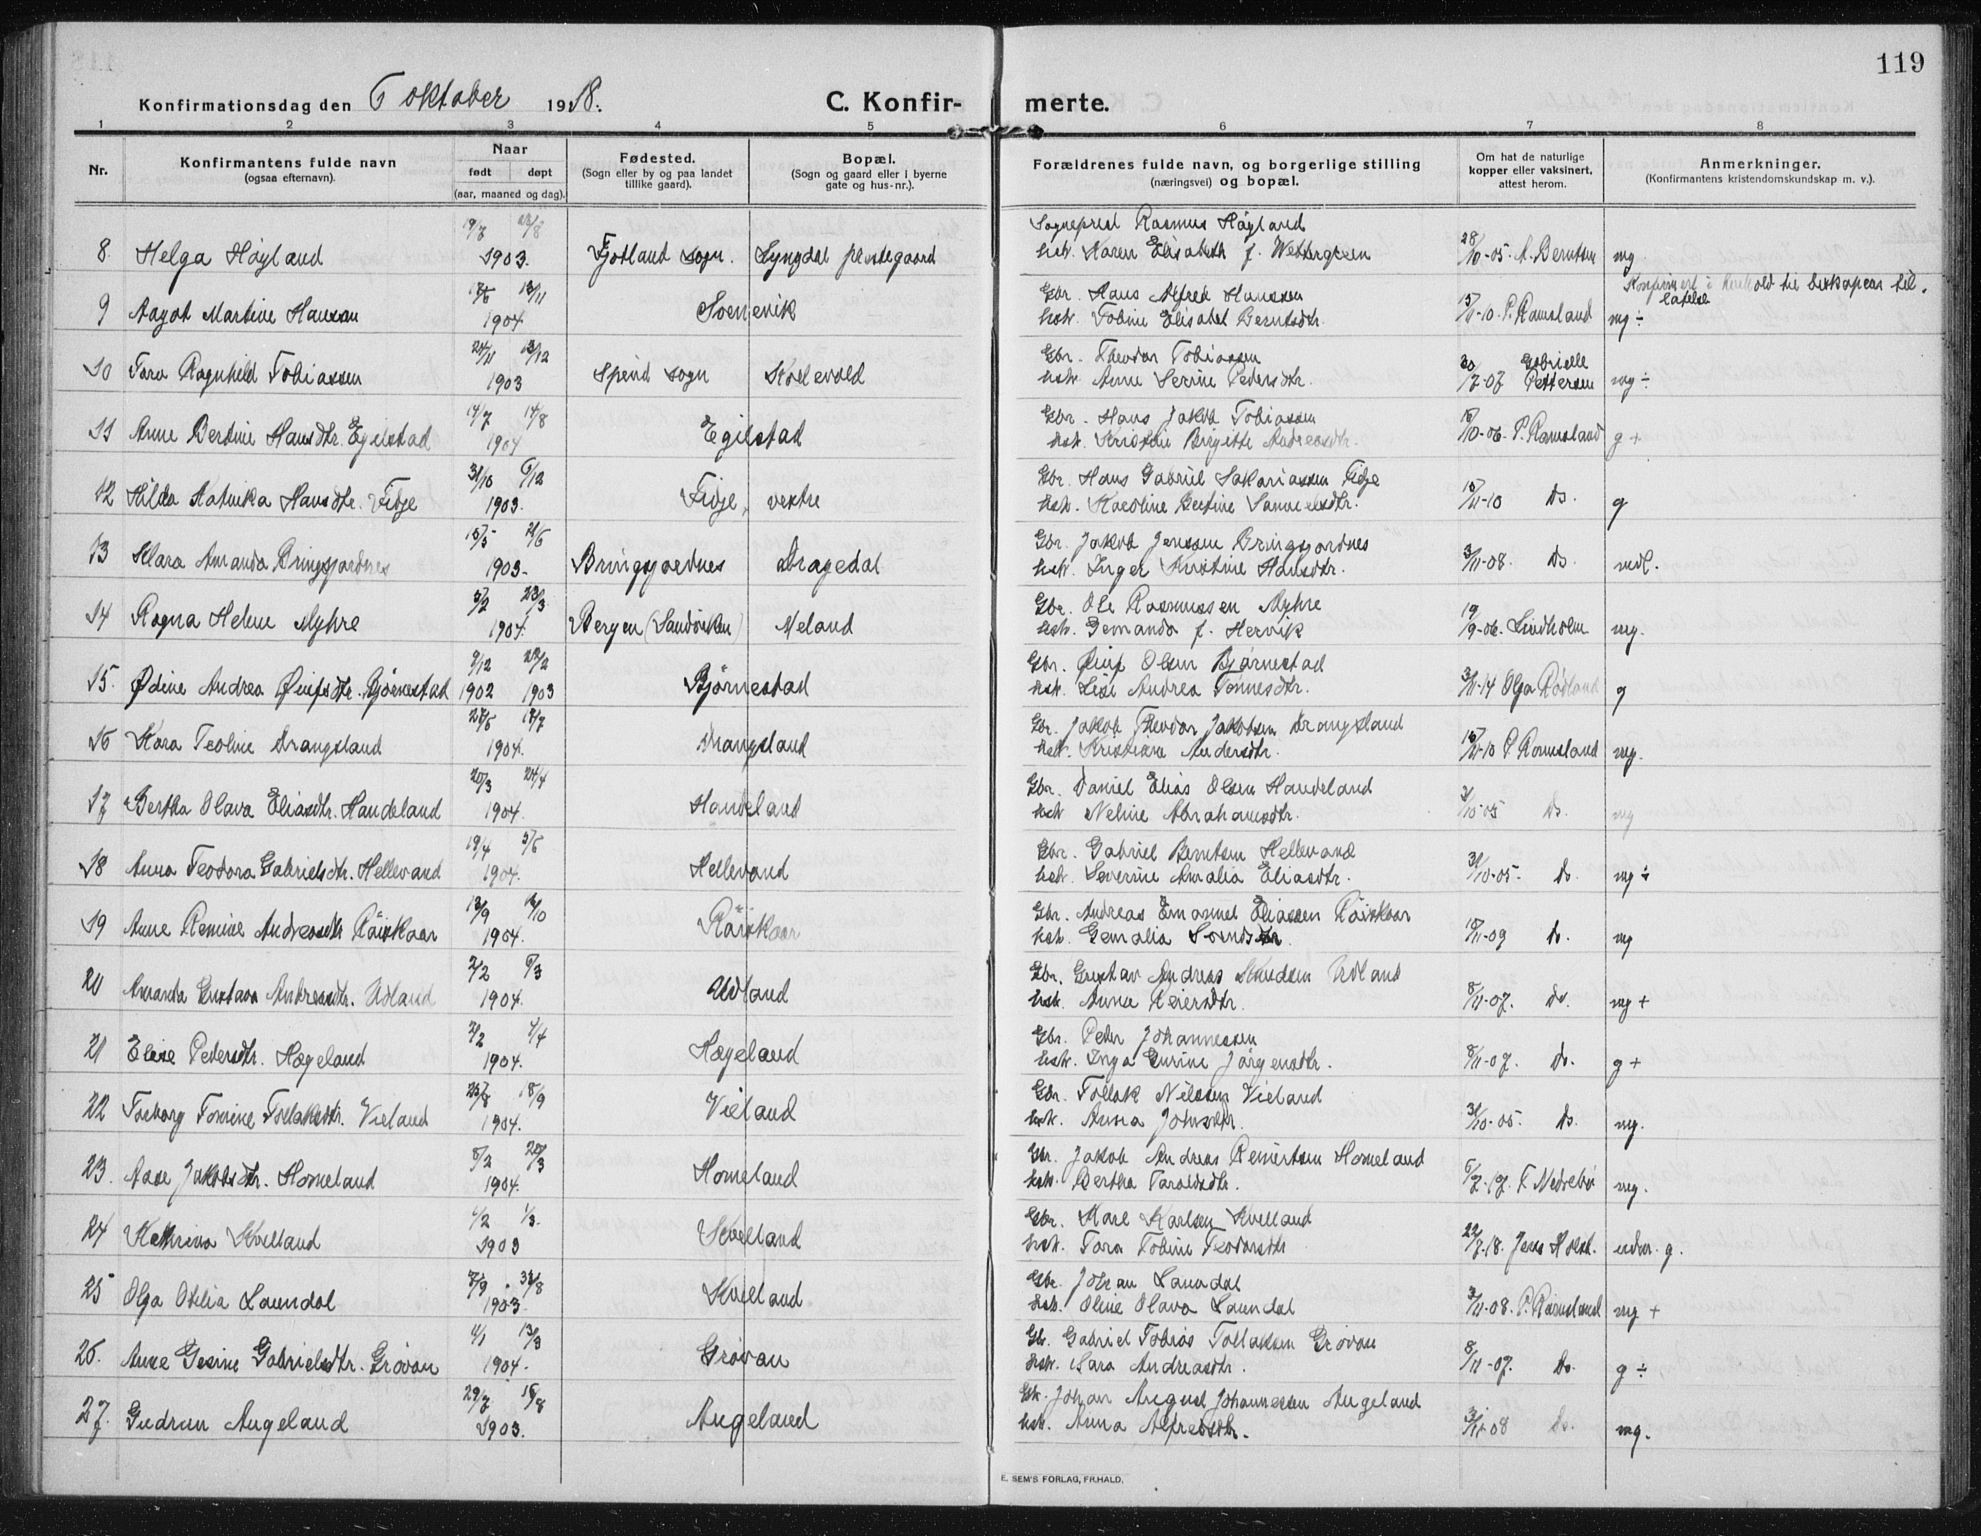 119
Konfirmationsdag den 6 oktober 1918.
C. Konfirmerte.
1 2 3 4 5 6 7 8
Nr.
Konfirmantens fulde navn
(ogsaa efternavn).
Naar
født døpt
(aar, maaned og dag).
Fødested.
(Sogn eller by og paa landet
tillike gaard).
Bopæl.
(Sogn og gaard eller i byerne
gate og hus-nr.).
Forældrenes fulde navn, og borgerlige stilling
(næringsvei) og bopæl.
Om hat de naturlige
kopper eller vaksinert,
attest herom.
Anmerkninger.
(Konfirmantens kristendomskundskap m. v.).
Sogneprest Rasmus Høyland
8 Helga Høyland 1903. Fjotland sogn. Lyngdal prestegaard hst. Karen Elisabeth f. Wettergreen 28/10-05 A. Berntsen mg
Gbr. Hans Alfred Hanssen
9 Aagot Martine Hansen 1904 Soenevik hst. Tobine Elisabet Berntsdtr. 15/11-10 P. Ramsland mg ÷
24/11 13/12 Gbr. Theodor Tobiassen Gabrielle
10 Tora Ragnhild Tobiassen 1903 Spind sogn Kollevold hst. Anne Serine Pedersdtr. 30/7-07 Pettersen mg ÷
14/7 14/8 Gbr. Hans Jakob Tobiassen
11 Anne Bertine Hansdtr. Egilstad 1904 Egilstad hst. Kristine Birgitte Andreasdtr. P. Ramsland g +
31/10 6/12 Gbr. Hans Gabriel Sakariassen Fidje
12 Hilda Katinka Hansdtr. Fidje 1903. Fidje, vestre hst. Karoline Bertine Samuelsdtr. 15/11-10 Do. g
15/5 21/6 Gbr. Jakob Jensen Bringsjordnes
13 Klara Amanda Bringsjordnes 1903- Bringsjordnes Dragedal hst. Inger Kristine Hansdtr. 3/11-08. Do. vedl.
5/2 23/3 Gbr. Ole Rasmussen Myhre
14 Ragna Helene Myhre 1904 Bergen (Sandviken) Meland hst. Gemanda f. Hervik 19/9-06. Lindholm mg.
9/12 22/2 Gbr. Øuif Olsen Bjørnestad
15. Ødine Andrea Øuifsdtr. Bjørnestad 1902 1903 Bjørnestad hst. Lise Andrea Tønnesdtr. 3/11-14 Olga Rødland g
Gbr. Jakob Theodor Jakobsen Drangsland
16 Kara Teoline Drangsland 1904. Drangsland hst. Kristiane Andersdtr. 15/11-10 P. Ramsland mg.
20/3 24/4 Gbr. Daniel Elias Olsen Handeland
17 Bertha Olava Eliasdtr. Handeland 1904. Handeland hst. Neline Abrahamsdtr. 31/10-05 Do. mg
19/4 5/6 Gbr. Gabriel Berntsen Hellevand
18 Anna Teodora Gabrielsdtr. Hellevand 1904. Hellevand hst. Severine Amalia Eliasdtr. 31/10-05. Do. mg ÷
Gbr. Andreas Emanuel Eliassen Røiskaar
19 Anne Remine Andreasdtr Røiskaar 1904. Røiskaar hst. Gemalia 11-09 Do. mg
2/2 6/3 Gbr. Gustav Andreas Knudsen Udland
20 Amanda Gustava Andreasdtr. Udland 1904. Udland hst. Anne Reiersdtr. 8/11-07. Do. mg +
2/2 4/4 Gbr. Peder Johannessen
21 Elise Pedersdtr. Hægeland 1904. Hægeland hst. Inga Gurine Jørgensdtr. 8/11-07. Do. g +
18/9 Gbr. Tollak Nilssen Vieland
22 Torborg Tomine Tollaksdtr. Vieland 1904. Vieland hst. Anna Johnsdtr. 31/10-05. Do. mg.
8/2 20/3 Gbr. Jakob Andreas Reinertsen Homeland
23. Aase Jakobsdtr. Homeland 1904. Homeland hst. Bertha Taraldsdtr. 6/7-17. F. Nedrebø mg.
4/2 1/3. Gbr. Karl Karlsen Kvelland
24 Kathrina Kvelland 1903 Kvelland hst. Tora Tobine Teodorsdtr 22/7-18. Jens Holst. udm. g.
Gbr. Johan Laundal
25 Olga Otilia Laundal 1903. Kvelland hst. Oline Olava Laundal 3/11-08. P. Ramsland mg +
4/1 13/3 Gbr. Gabriel Tobias Tollaksen Grøvan
26. Anne Gesine Gabrielsdtr. Grøvan 1904. Grøvan hst. Sara Andreasdtr. 8/11-07. Do. g ÷
29/7 16/8 Gbr. Johan August Johannessen Augeland
27. Gudrun Augeland 1903. Augeland hst. Anna Alfredsdtr. 3/11-08 Do. mg.
E. SEM'S FORLAG, FR.HALD.